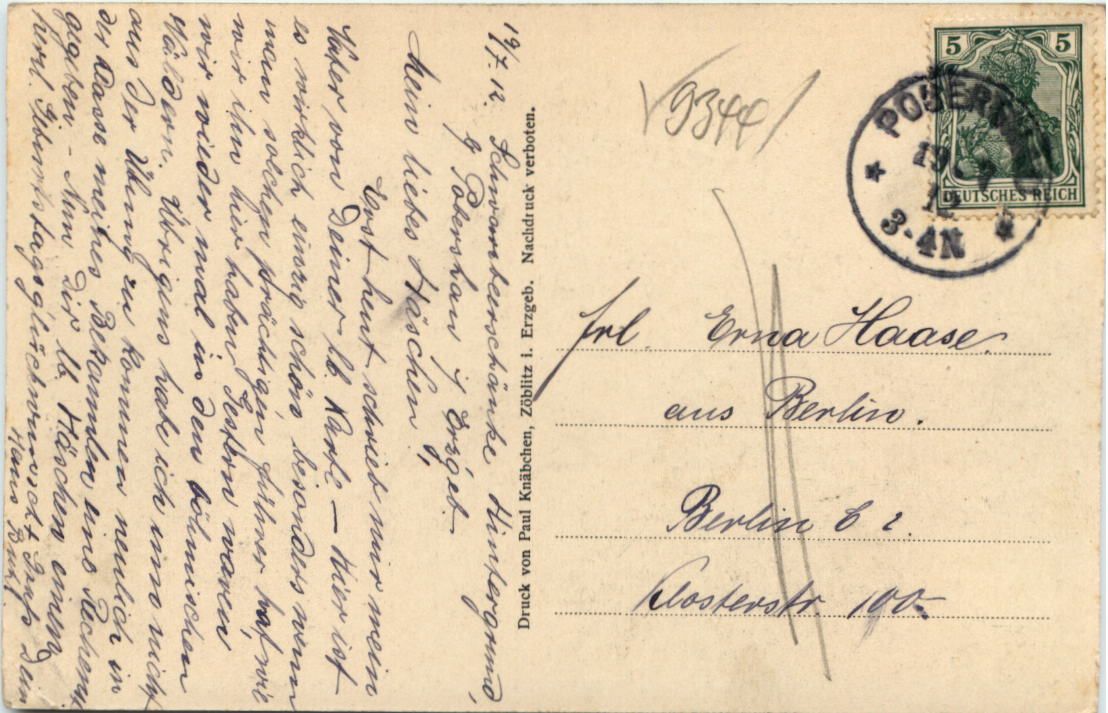 19/7.12. Schwarzbeerschänke Hintergrund,
b/ Pobershau i/ Erzgeb.
Mein liebes Häschen!
Erst heut schrieb mir mein
Vater von Deiner lb. Karte – Hier ist
es wirklich einzig schön besonders wenn
man solchen prächtigen Führer hat wie
wir ihn hier haben Gestern waren
wir wieder mal in den böhmischen
Wäldern. Übrigens habe ich uns nicht
aus der Übung zu kommen neulich in
der Kasse meines Bekannten uns Rechens
gegeben – Nun Dir lb Häschen einen
herzl. Geburtstagsglückwunsch Dein
Hans
Druck von Paul Knäbchen, Zöblitz i. Erzgeb. Nachdruck verboten.
9344
5 5
DEUTSCHES REICH
POBERSHAU
19. 7
12
3-4N
Frl. Erna Haase.
aus Berlin.
Berlin C 2
Klosterstr 100